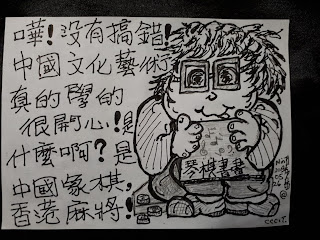 嘩!没有搞錯!
中國文化藝術
真的學的
很開心!是
什麼啊?是
中國象棋,
香港麻將!
琴棋書畫
CCCIT.